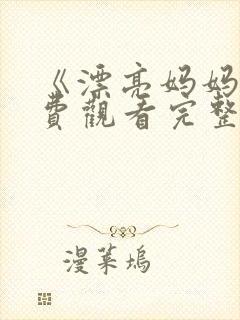 《漂亮妈妈
費觀看完整
漫菓坞